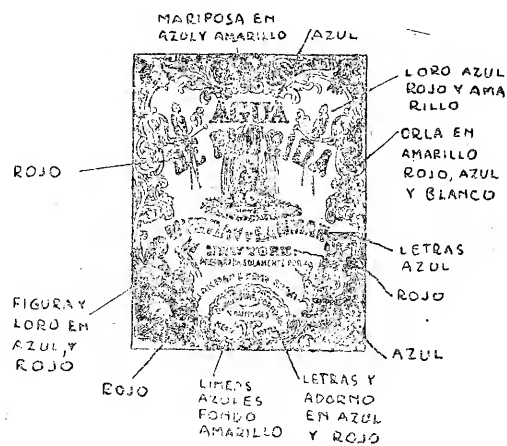 MARIPOSA EN
AZUL Y AMARILLO
AZUL
LORO AZUL
ROJO Y AMA
RILLO
ORLA EN
AMARILLO
ROJO, AZUL
Y BLANCO
ROJO
AGUA
DE FLORIDA
NEW YORK
SOLAMENTE POR
LETRAS
AZUL
ROJO
FIGURA Y
LORO EN
AZUL, Y
ROJO
AZUL
ROJO
LINEAS
AZULES
FONDO
AMARILLO
LETRAS Y
ADORNO
EN AZUL
Y ROJO